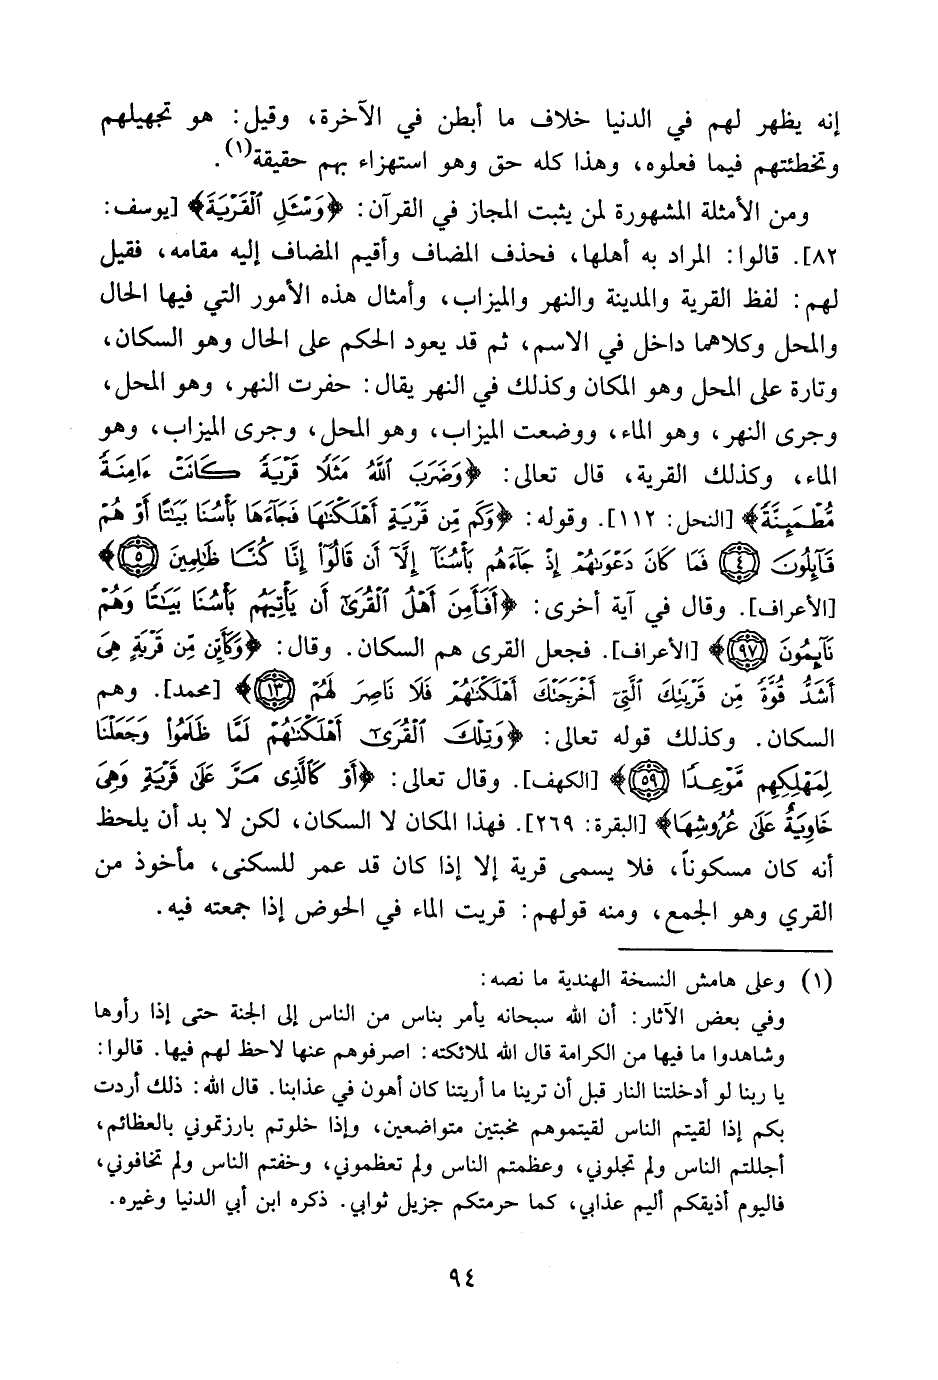 إنه يظهر لهم في الدنيا خلاف ما أبطن في الآخرة، وقيل: هو تجهيلهم
وتخطئتهم فيما فعلوه، وهذا كله حق وهو استهزاء بهم حقيقة(١).
ومن الأمثلة المشهورة لمن يثبت المجاز في القرآن: ﴿وَسْـَٔلِ ٱلْقَرْيَةَ﴾ [يوسف:
٨٢]. قالوا: المراد به أهلها، فحذف المضاف وأقيم المضاف إليه مقامه، فقيل
لهم: لفظ القرية والمدينة والنهر والميزاب، وأمثال هذه الأمور التي فيها الحال
والمحل وكلاهما داخل في الاسم، ثم قد يعود الحكم على الحال وهو السكان،
وتارة على المحل وهو المكان وكذلك في النهر يقال: حفرت النهر، وهو المحل،
وجرى النهر، وهو الماء، ووضعت الميزاب، وهو المحل، وجرى الميزاب، وهو
الماء، وكذلك القرية، قال تعالى: ﴿وَضَرَبَ ٱللَّهُ مَثَلًا قَرْيَةً كَانَتْ ءَامِنَةً
مُّطْمَئِنَّةً﴾ [النحل: ١١٢]. وقوله: ﴿وَكَم مِّن قَرْيَةٍ أَهْلَكْنَٰهَا فَجَآءَهَا بَأْسُنَا بَيَٰتًا أَوْ هُمْ
قَآئِلُونَ ٤ فَمَا كَانَ دَعْوَىٰهُمْ إِذْ جَآءَهُم بَأْسُنَآ إِلَّآ أَن قَالُوٓا۟ إِنَّا كُنَّا ظَٰلِمِينَ ٥﴾
[الأعراف]. وقال في آية أخرى: ﴿أَفَأَمِنَ أَهْلُ ٱلْقُرَىٰٓ أَن يَأْتِيَهُم بَأْسُنَا بَيَٰتًا وَهُمْ
نَآئِمُونَ ٩٧﴾ [الأعراف]. فجعل القرى هم السكان. وقال: ﴿وَكَأَيِّن مِّن قَرْيَةٍ هِىَ
أَشَدُّ قُوَّةً مِّن قَرْيَتِكَ ٱلَّتِىٓ أَخْرَجَتْكَ أَهْلَكْنَٰهُمْ فَلَا نَاصِرَ لَهُمْ ١٣﴾ [محمد]. وهم
السكان. وكذلك قوله تعالى: ﴿وَتِلْكَ ٱلْقُرَىٰٓ أَهْلَكْنَٰهُمْ لَمَّا ظَلَمُوا۟ وَجَعَلْنَا
لِمَهْلِكِهِم مَّوْعِدًا ٥٩﴾ [الكهف]. وقال تعالى: ﴿أَوْ كَٱلَّذِى مَرَّ عَلَىٰ قَرْيَةٍ وَهِىَ
خَاوِيَةٌ عَلَىٰ عُرُوشِهَا﴾ [البقرة: ٢٦٩]. فهذا المكان لا السكان، لكن لا بد أن يلحظ
أنه كان مسكوناً، فلا يسمى قرية إلا إذا كان قد عمر للسكنى، مأخوذ من
القري وهو الجمع، ومنه قولهم: قريت الماء في الحوض إذا جمعته فيه.
(١) وعلى هامش النسخة الهندية ما نصه:
وفي بعض الآثار: أن الله سبحانه يأمر بناس من الناس إلى الجنة حتى إذا رأوها
وشاهدوا ما فيها من الكرامة قال الله لملائكته: اصرفوهم عنها لاحظ لهم فيها. قالوا:
يا ربنا لو أدخلتنا النار قبل أن ترينا ما أريتنا كان أهون في عذابنا. قال الله: ذلك أردت
بكم إذا لقيتم الناس لقيتموهم مخبتين متواضعين، وإذا خلوتم بارزتموني بالعظائم،
أجللتم الناس ولم تجلوني، وعظمتم الناس ولم تعظموني، وخفتم الناس ولم تخافوني،
فاليوم أذيقكم أليم عذابي، كما حرمتكم جزيل ثوابي. ذكره ابن أبي الدنيا وغيره.
٩٤